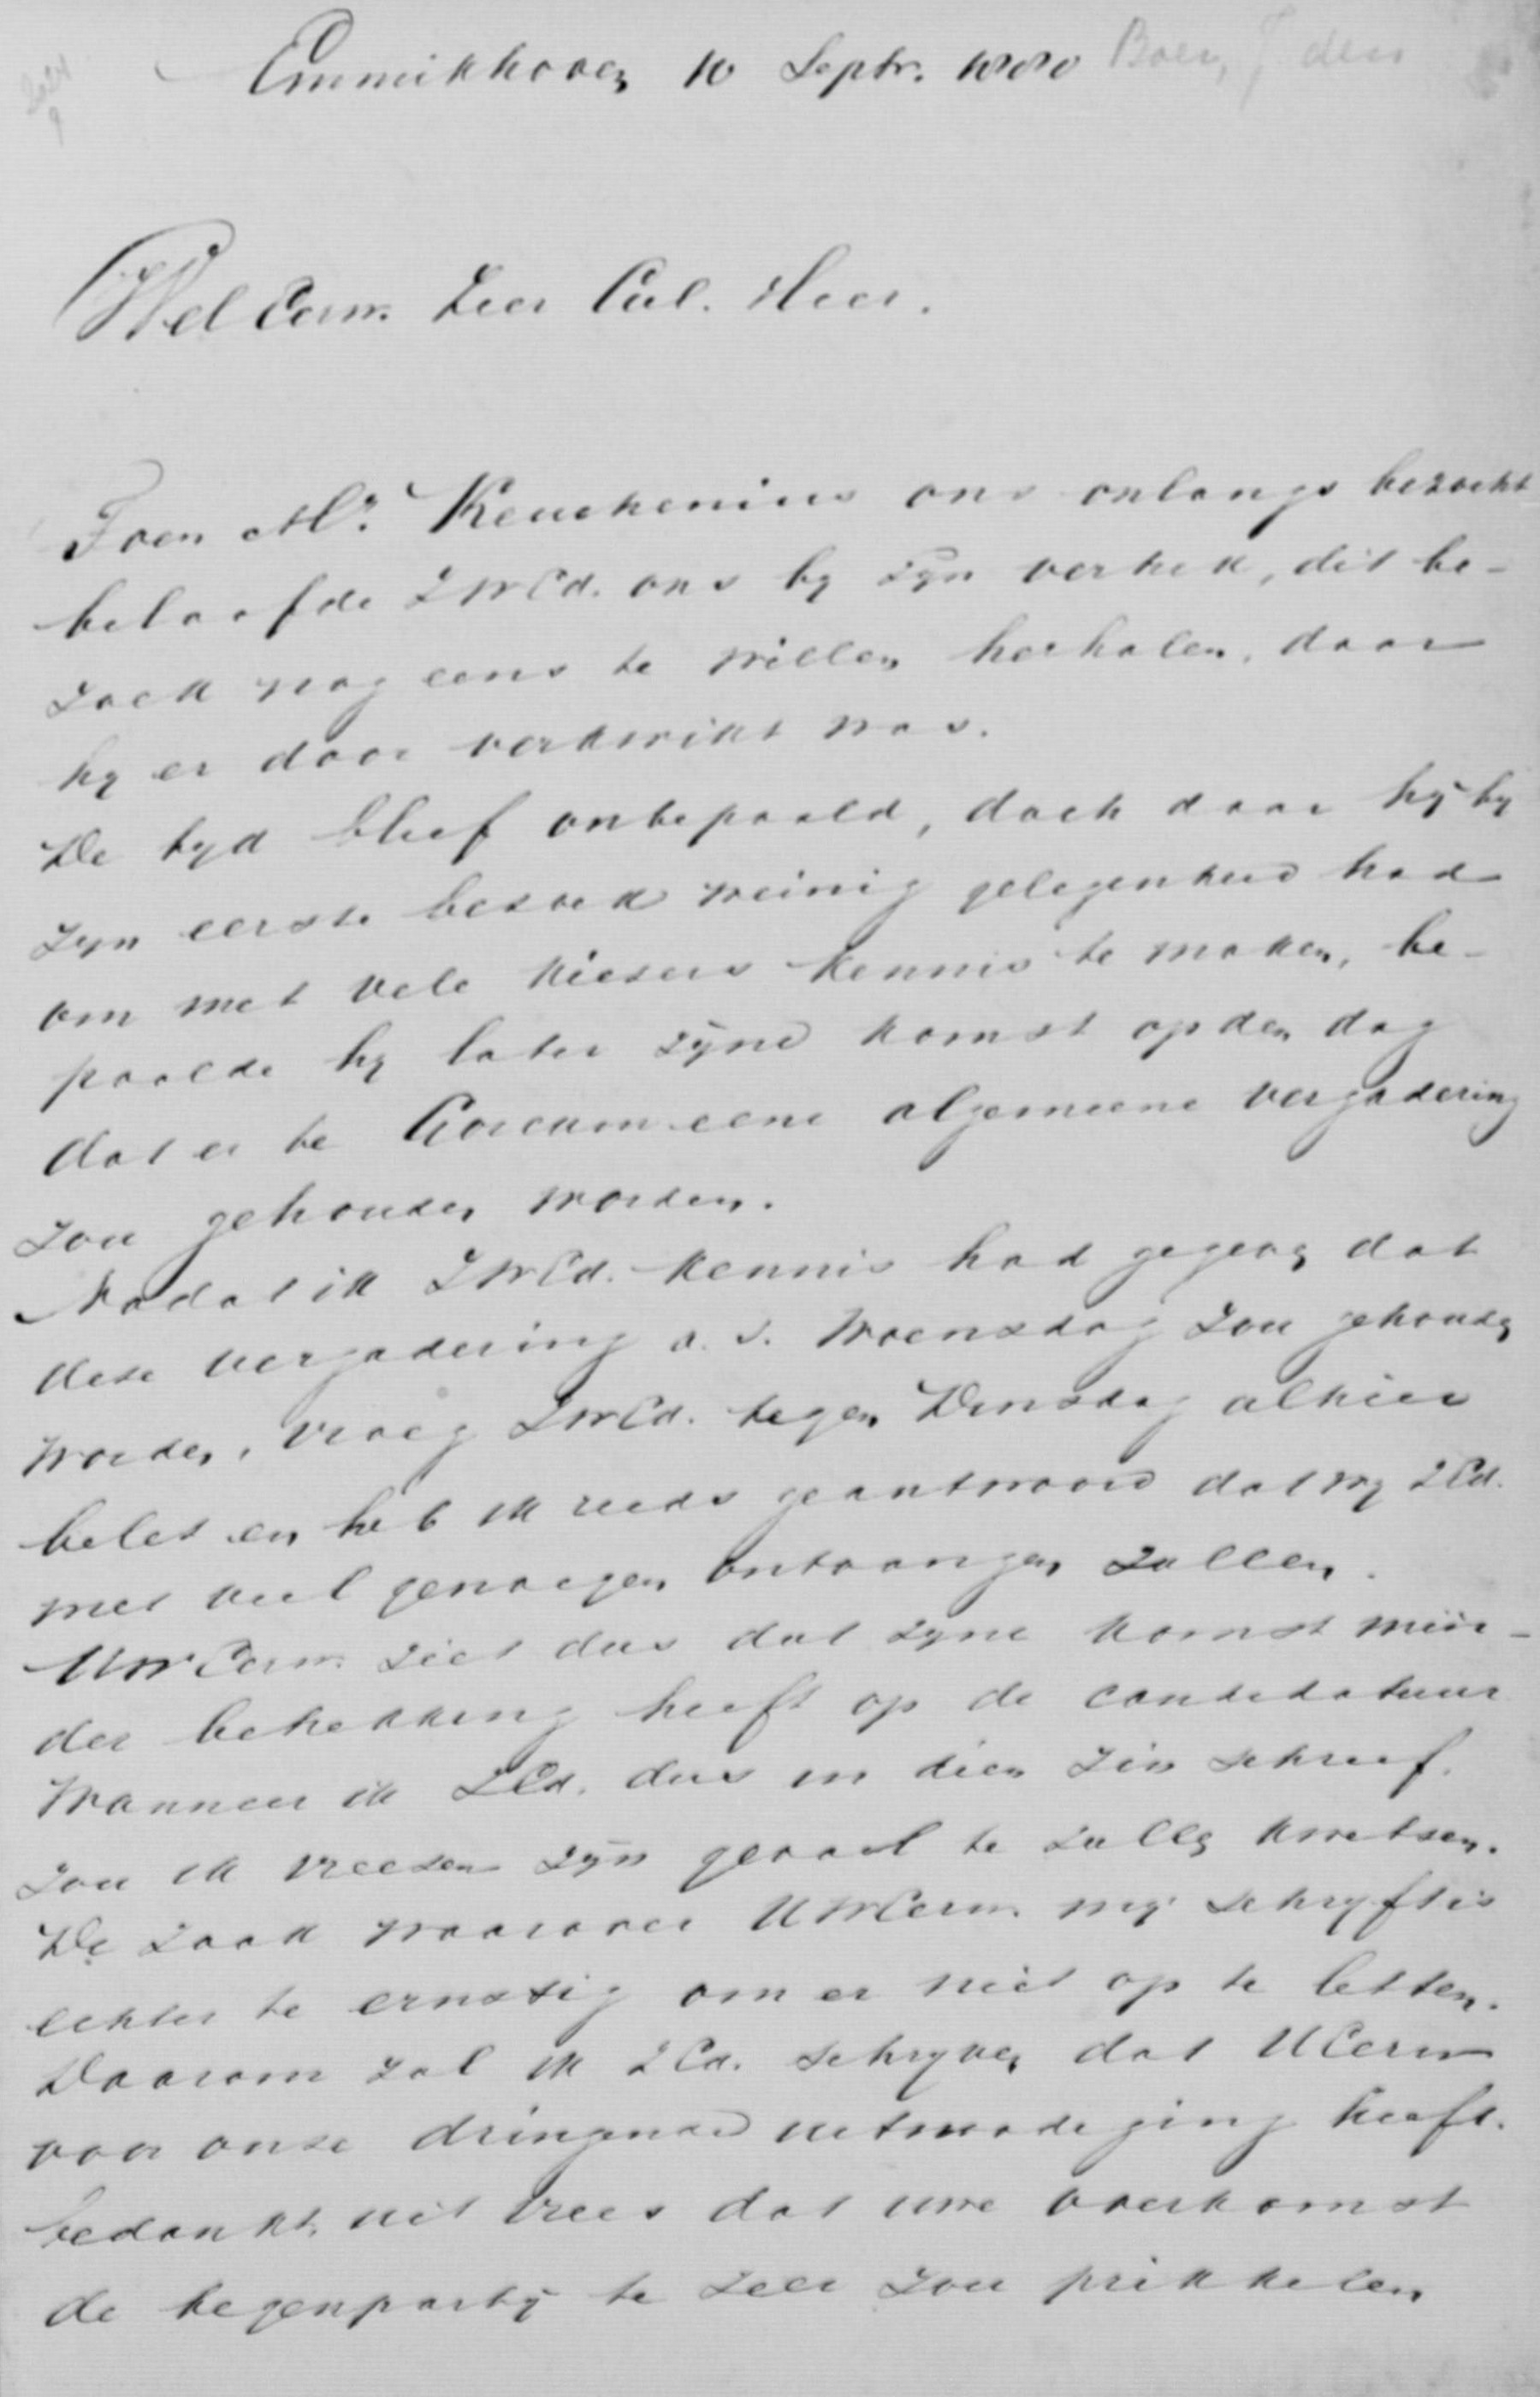 Emmikhoven 10 Septr. 1880 Boer, J den
WelEerw. Zeer Gel. Heer.
Toen Mr. Keuchenius ons onlangs bezocht
beloofde ZWEd. ons by zyn vertrek, dit be-
zoek nog eens te willen herhalen, daar
hy er door verkwikt was.
De tyd bleef onbepaald, doch daar hy by
zyn eerste bezoek weinig gelegenheid had
om met vele kiezers kennis te maken, be-
paalde hy later zyne komst op den dag
dat er te Gorcum eene algemeene vergadering
zou gehouden worden.
Nadat ik ZWEd. kennis had gegeven dat
deze vergadering a. s. Woensdag zou gehouden
worden, vroeg ZWEd. tegen Dinsdag alhier
belet en heb ik reeds geantwoord dat wy ZEd.
met veel genoegen ontvangen zullen.
UWEerw. ziet dus dat zyne komst min-
der betrekking heeft op de candidatuur
Wanneer ik ZEd. dus in dien zin schreef.
zou ik vreezen zyn gevoel te zullen kwetsen.
De zaak waarover UWEerw. my schryft is
echter te ernstig om er niet op te letten.
Daarom zal ik ZEd. schryven dat UEerw
voor onze dringende uitnoodiging heeft.
bedankt, uit vrees dat uwe overkomst
de tegenparty te zeer zou prikkelen